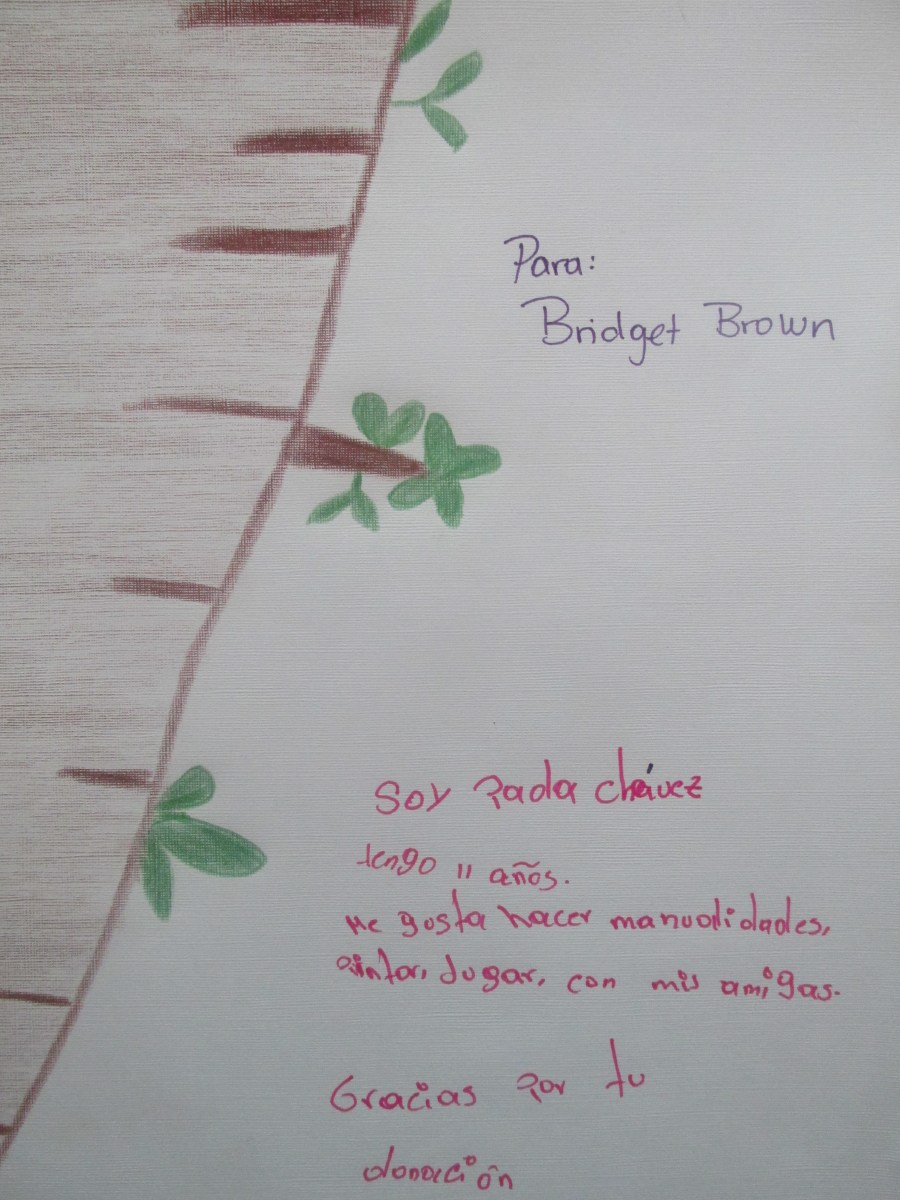 Para:
Bridget Brown
Soy Pada Chávez
tengo 11 años.
Me gusta hacer manualidades,
pintar, Jugar, con mis amigas.
Gracias por tu
donación